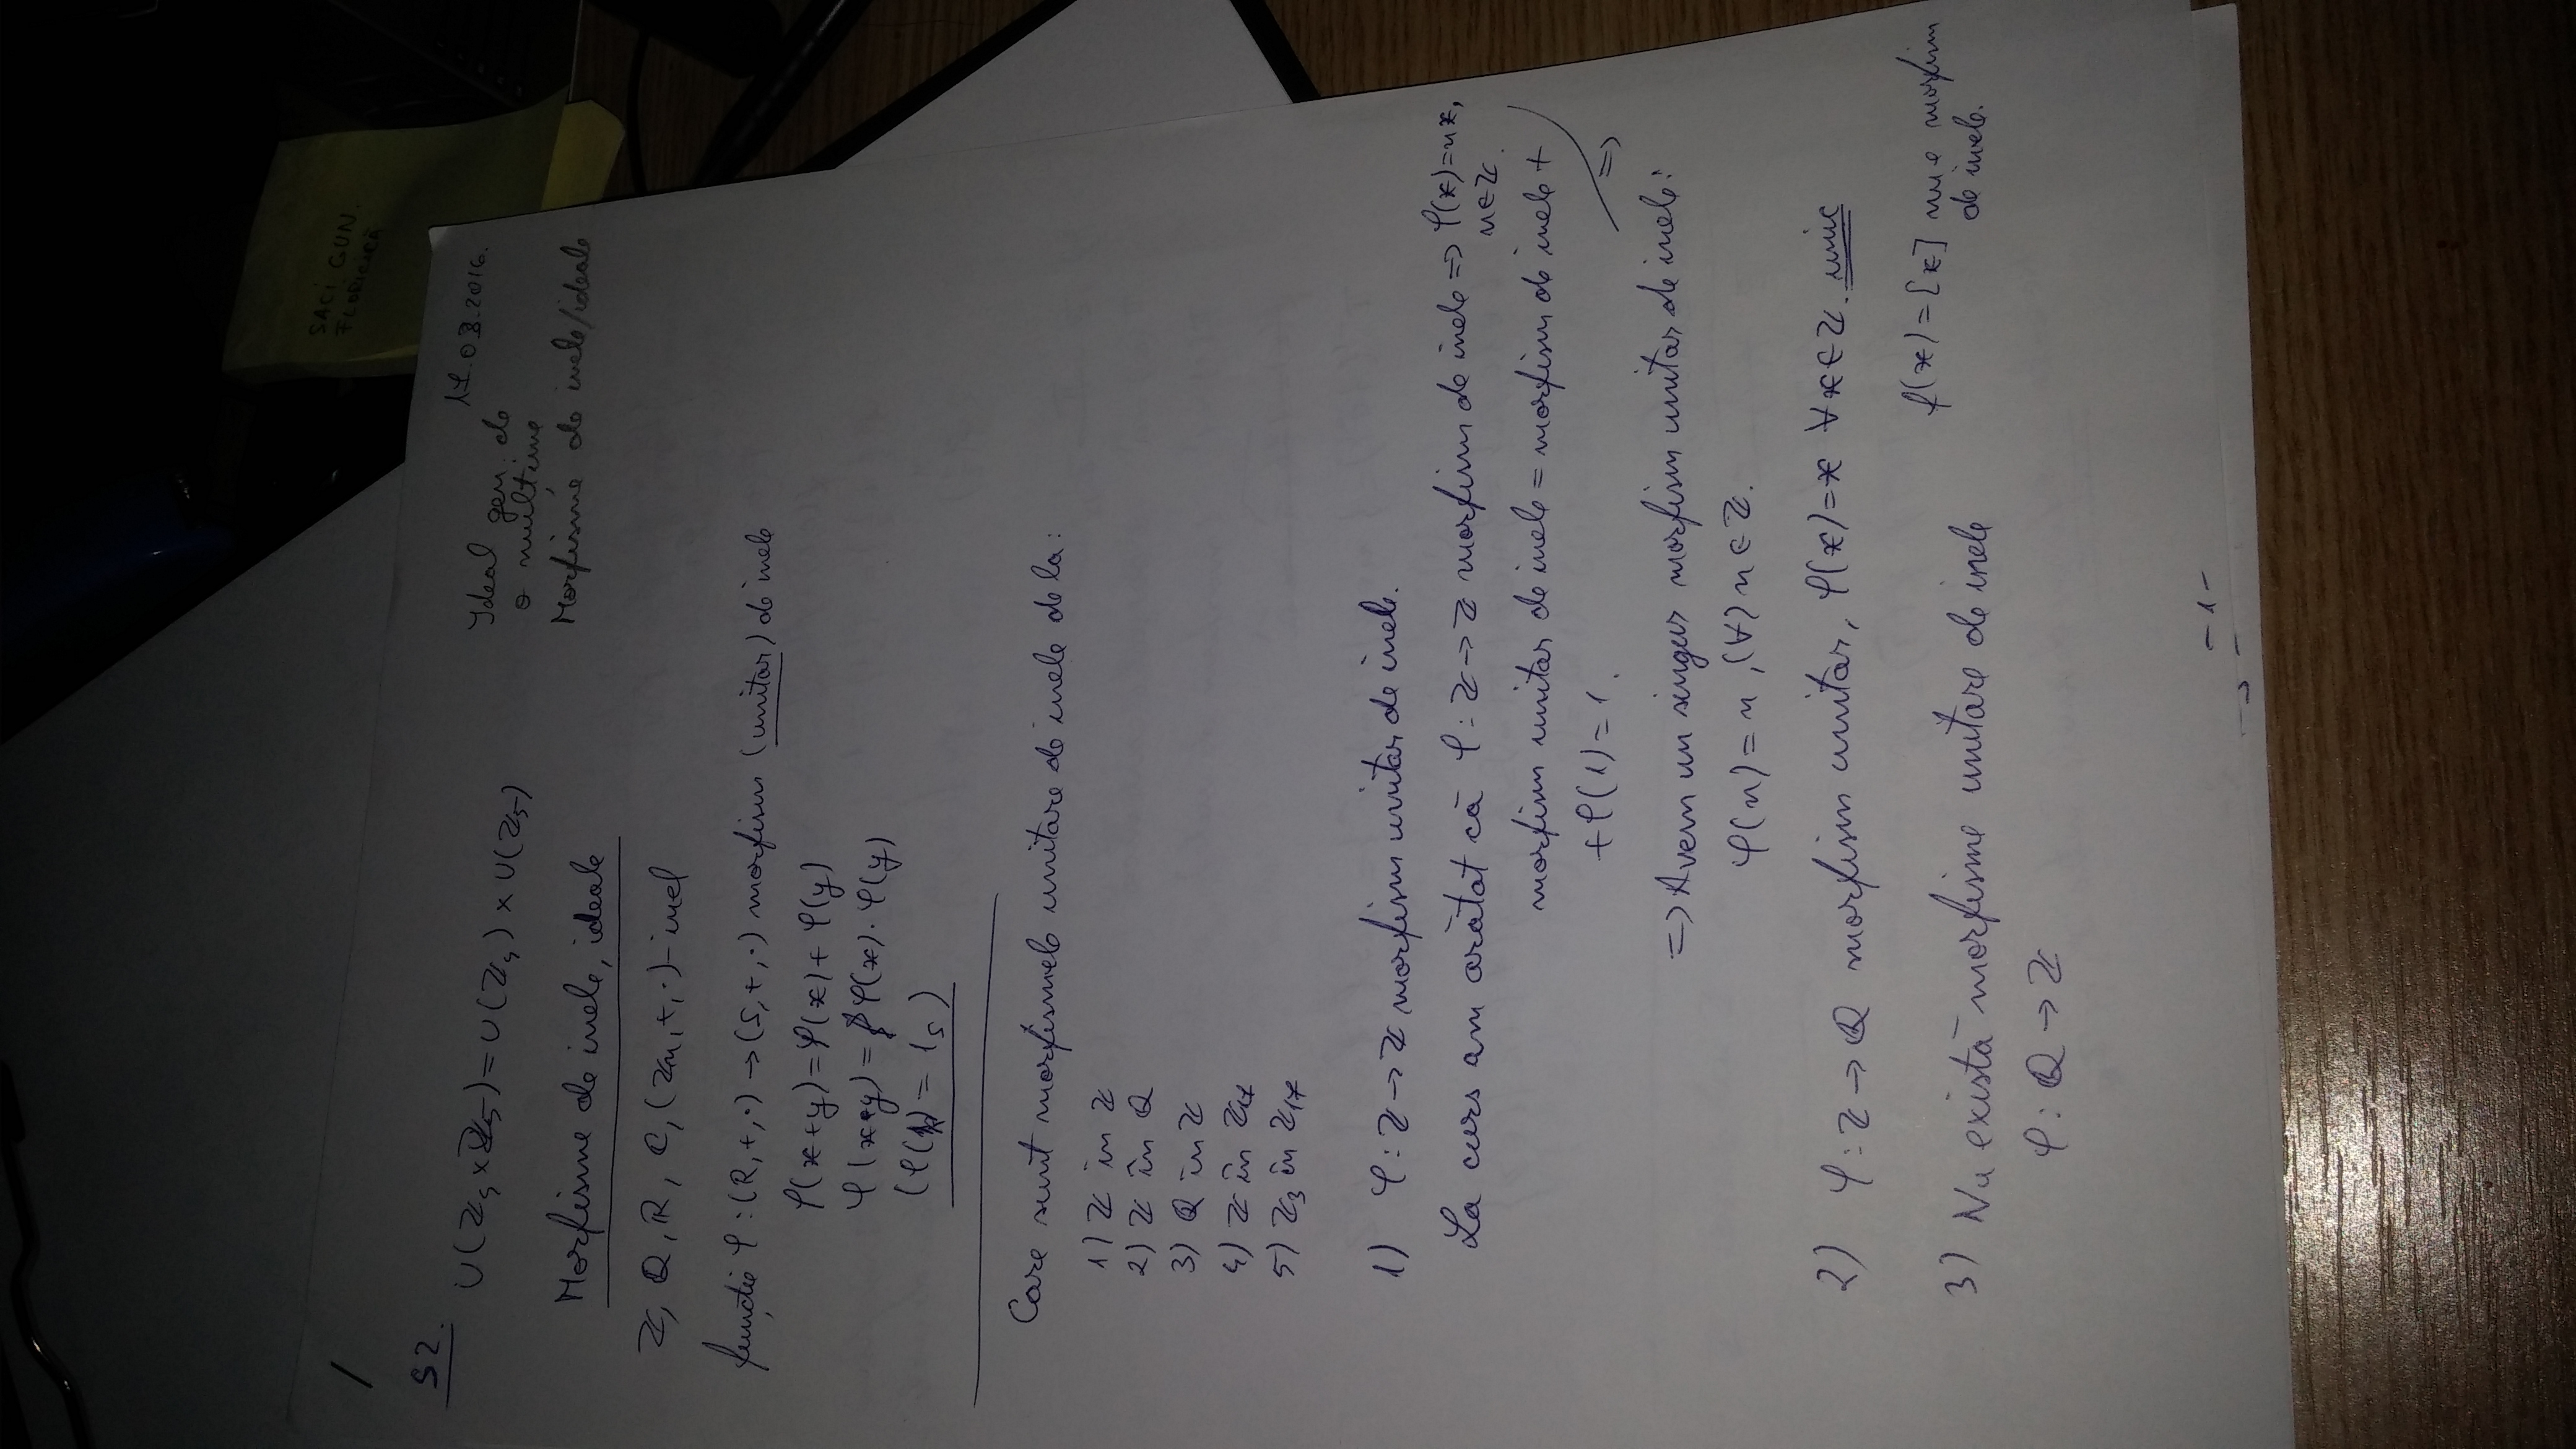 SACI GUN.
FLORICICĂ
/
S2.
17.03.2016.
U(ℤ₄×ℤ₅)=U(ℤ₄)×U(ℤ₅)
Ideal gen. de
o mulțime
Morfisme de inele/ideale
Morfisme de inele, ideale
ℤ, ℚ, ℝ, ℂ, (ℤn,+,·)-inel
funcție φ:(R,+,·)→(S,+,·) morfism (unitar) de inele
φ(x+y)=φ(x)+φ(y)
φ(x·y)=φ(x)·φ(y)
(φ(1)=1S)
Care sunt morfismele unitare de inele de la:
1) ℤ în ℤ
2) ℤ în ℚ
3) ℚ în ℤ
4) ℤ în ℤ17
5) ℤ3 în ℤ17
1) φ:ℤ→ℤ morfism unitar de inele.
La curs am arătat că φ:ℤ→ℤ morfism de inele => φ(x)=nx,
n∈ℤ.
morfism unitar de inele = morfism de inele +
+φ(1)=1. =>
=> Avem un singur morfism unitar de inele:
φ(n)=n, (∀) n∈ℤ.
2) φ:ℤ→ℚ morfism unitar, φ(x)=x ∀x∈ℤ. unic
f(x)=[x] nu e morfism
de inele.
3) Nu există morfisme unitare de inele
φ:ℚ→ℤ
-1-